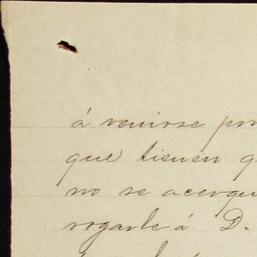 á venirse por
que tienen q
no se acerqu
rogarle á D.